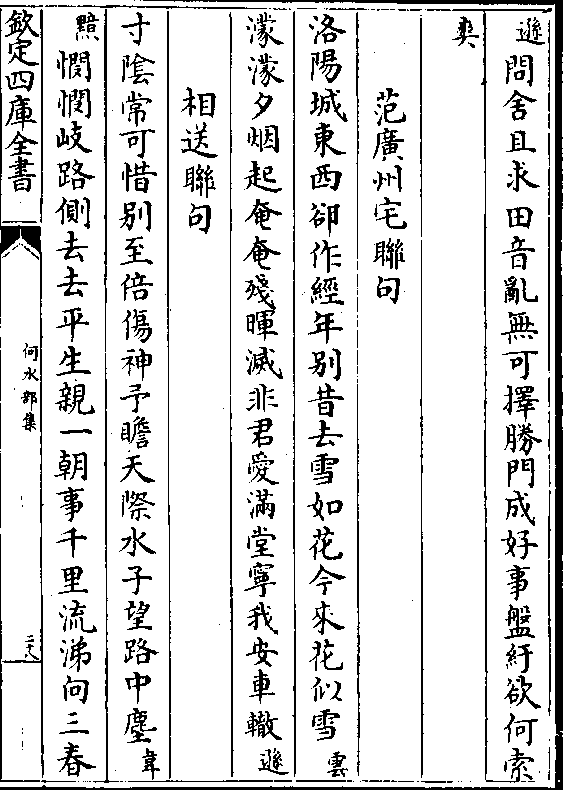 遜問舍且求田音亂無可擇勝門成好事盤紆欲何索
爽
范廣州宅聯句
洛陽城東西卻作經年别昔去雪如花今來花似雪雲
濛濛夕烟起奄奄殘暉滅非君愛滿堂寧我安車轍遜
相送聯句
寸陰常可惜别至倍傷神予瞻天際水子望路中塵韋
黯憫憫岐路側去去平生親一朝事千里流涕向三春
欽定四庫全書
何水部集
二十八